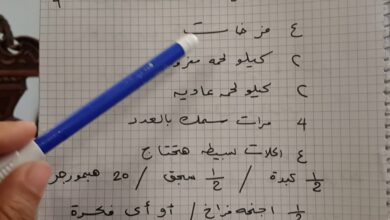 ٤ فرخات
٢ كيلو لحمه مفرومه
٢ كيلو لحمه عاديه
4 مرات سمك بالعدد
٤ اكلات بسيطه هتحتاج
½ كبدة / ½ سجق / 20 هيمبورجر
½ اجنحه فراخ / او أى فكرة